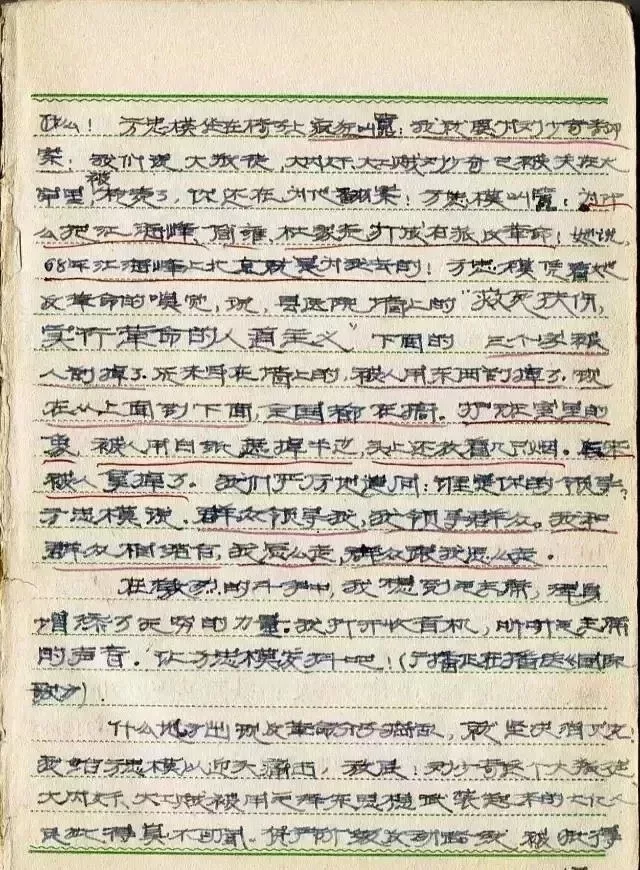 什么！方忠模坐在椅子上疯狂叫嚣：我就要为刘少奇翻
案！我们说大叛徒，大内奸大工贼刘少奇已被关在大
牢里，被 了，你还在为他翻案！方忠模叫嚣：为什
么把江海峰、 打成右派反革命！她说，
68年江海峰上北京就是为 去的！方忠模凭着她
反革命的嗅觉，说，县医院墙上的“救死扶伤，
实行革命的人道主义”下面的三个字被
人刮掉了。原来写在墙上的，被人用东西刮掉了。现
在从上面到下面，全国都在搞。 班室里的
象，被人用白纸遮掉半边，头上还放着几只烟。后来
被人拿掉了。我们严厉地追问：谁是你的领导？
方忠模说：群众领导我，我领导群众。我和
群众相结合，我怎么走，群众跟我怎么走。
在激烈的斗争中，我想到毛主席，浑身
增添了无穷的力量。我打开收音机，听听毛主席
的声音。让方忠模发抖吧！（广播正在播送《国际
歌》）。
什么地方出现反革命分子捣乱，就坚决消灭。
我给方忠模以迎头痛击，我说：刘少奇这个大叛徒、
大内奸、大工贼被用毛泽东思想武装起来的七亿人
民批得臭不可闻。资产阶级反动路线 被批得